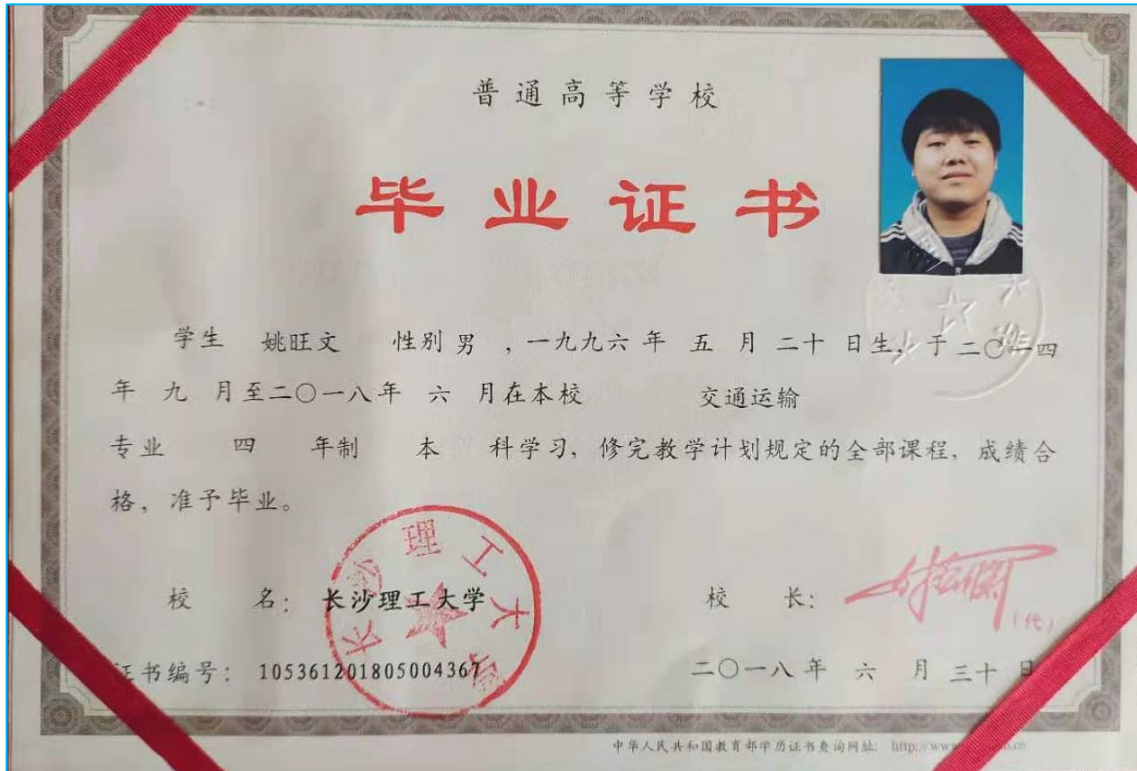 普通高等学校
毕业证书
学生 姚旺文 性别 男 ，一九九六 年 五 月 二十 日生，于二〇一四
年 九 月至二〇一八年 六 月在本校 交通运输
专业 四 年制 本 科学习，修完教学计划规定的全部课程，成绩合
格，准予毕业。
校 名：长沙理工大学
长沙理工大学
校 长：
（代）
证书编号：105361201805004367
二〇一八年 六 月 三十 日
中华人民共和国教育部学历证书查询网址： http://www